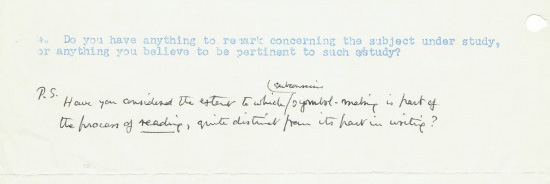 4. Do you have anything to remark concerning the subject under study,
or anything you believe to be pertinent to such study?
(subconscious
P.S. Have you considered the extent to which / symbol-making is part of
the process of reading, quite distinct from its part in writing?